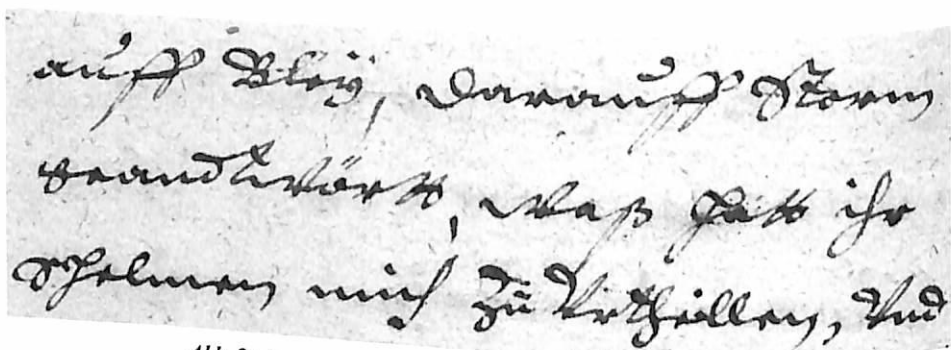 auff Bley, darauff Storm
beandtwortt, waß hatt ihr
schelmen mich zu Urtheillen, Und